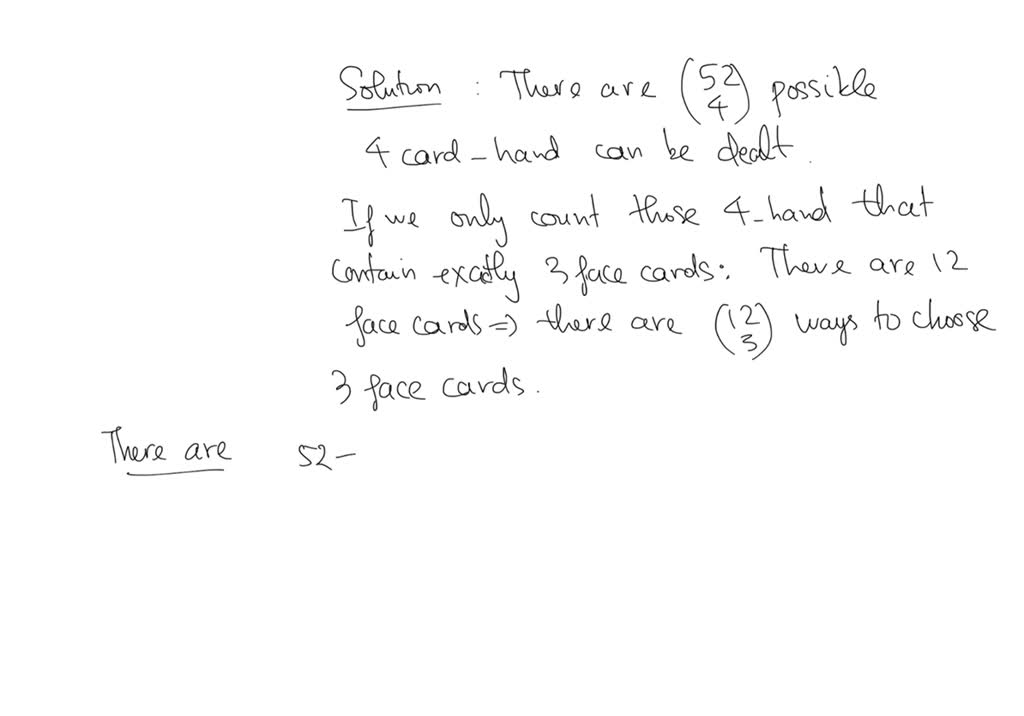 Solution : There are (52 4) possible
4 card-hand can be dealt.
If we only count those 4-hand that
contain exactly 3 face cards: There are 12
face cards => there are (12 3) ways to choose
3 face cards.
There are 52-